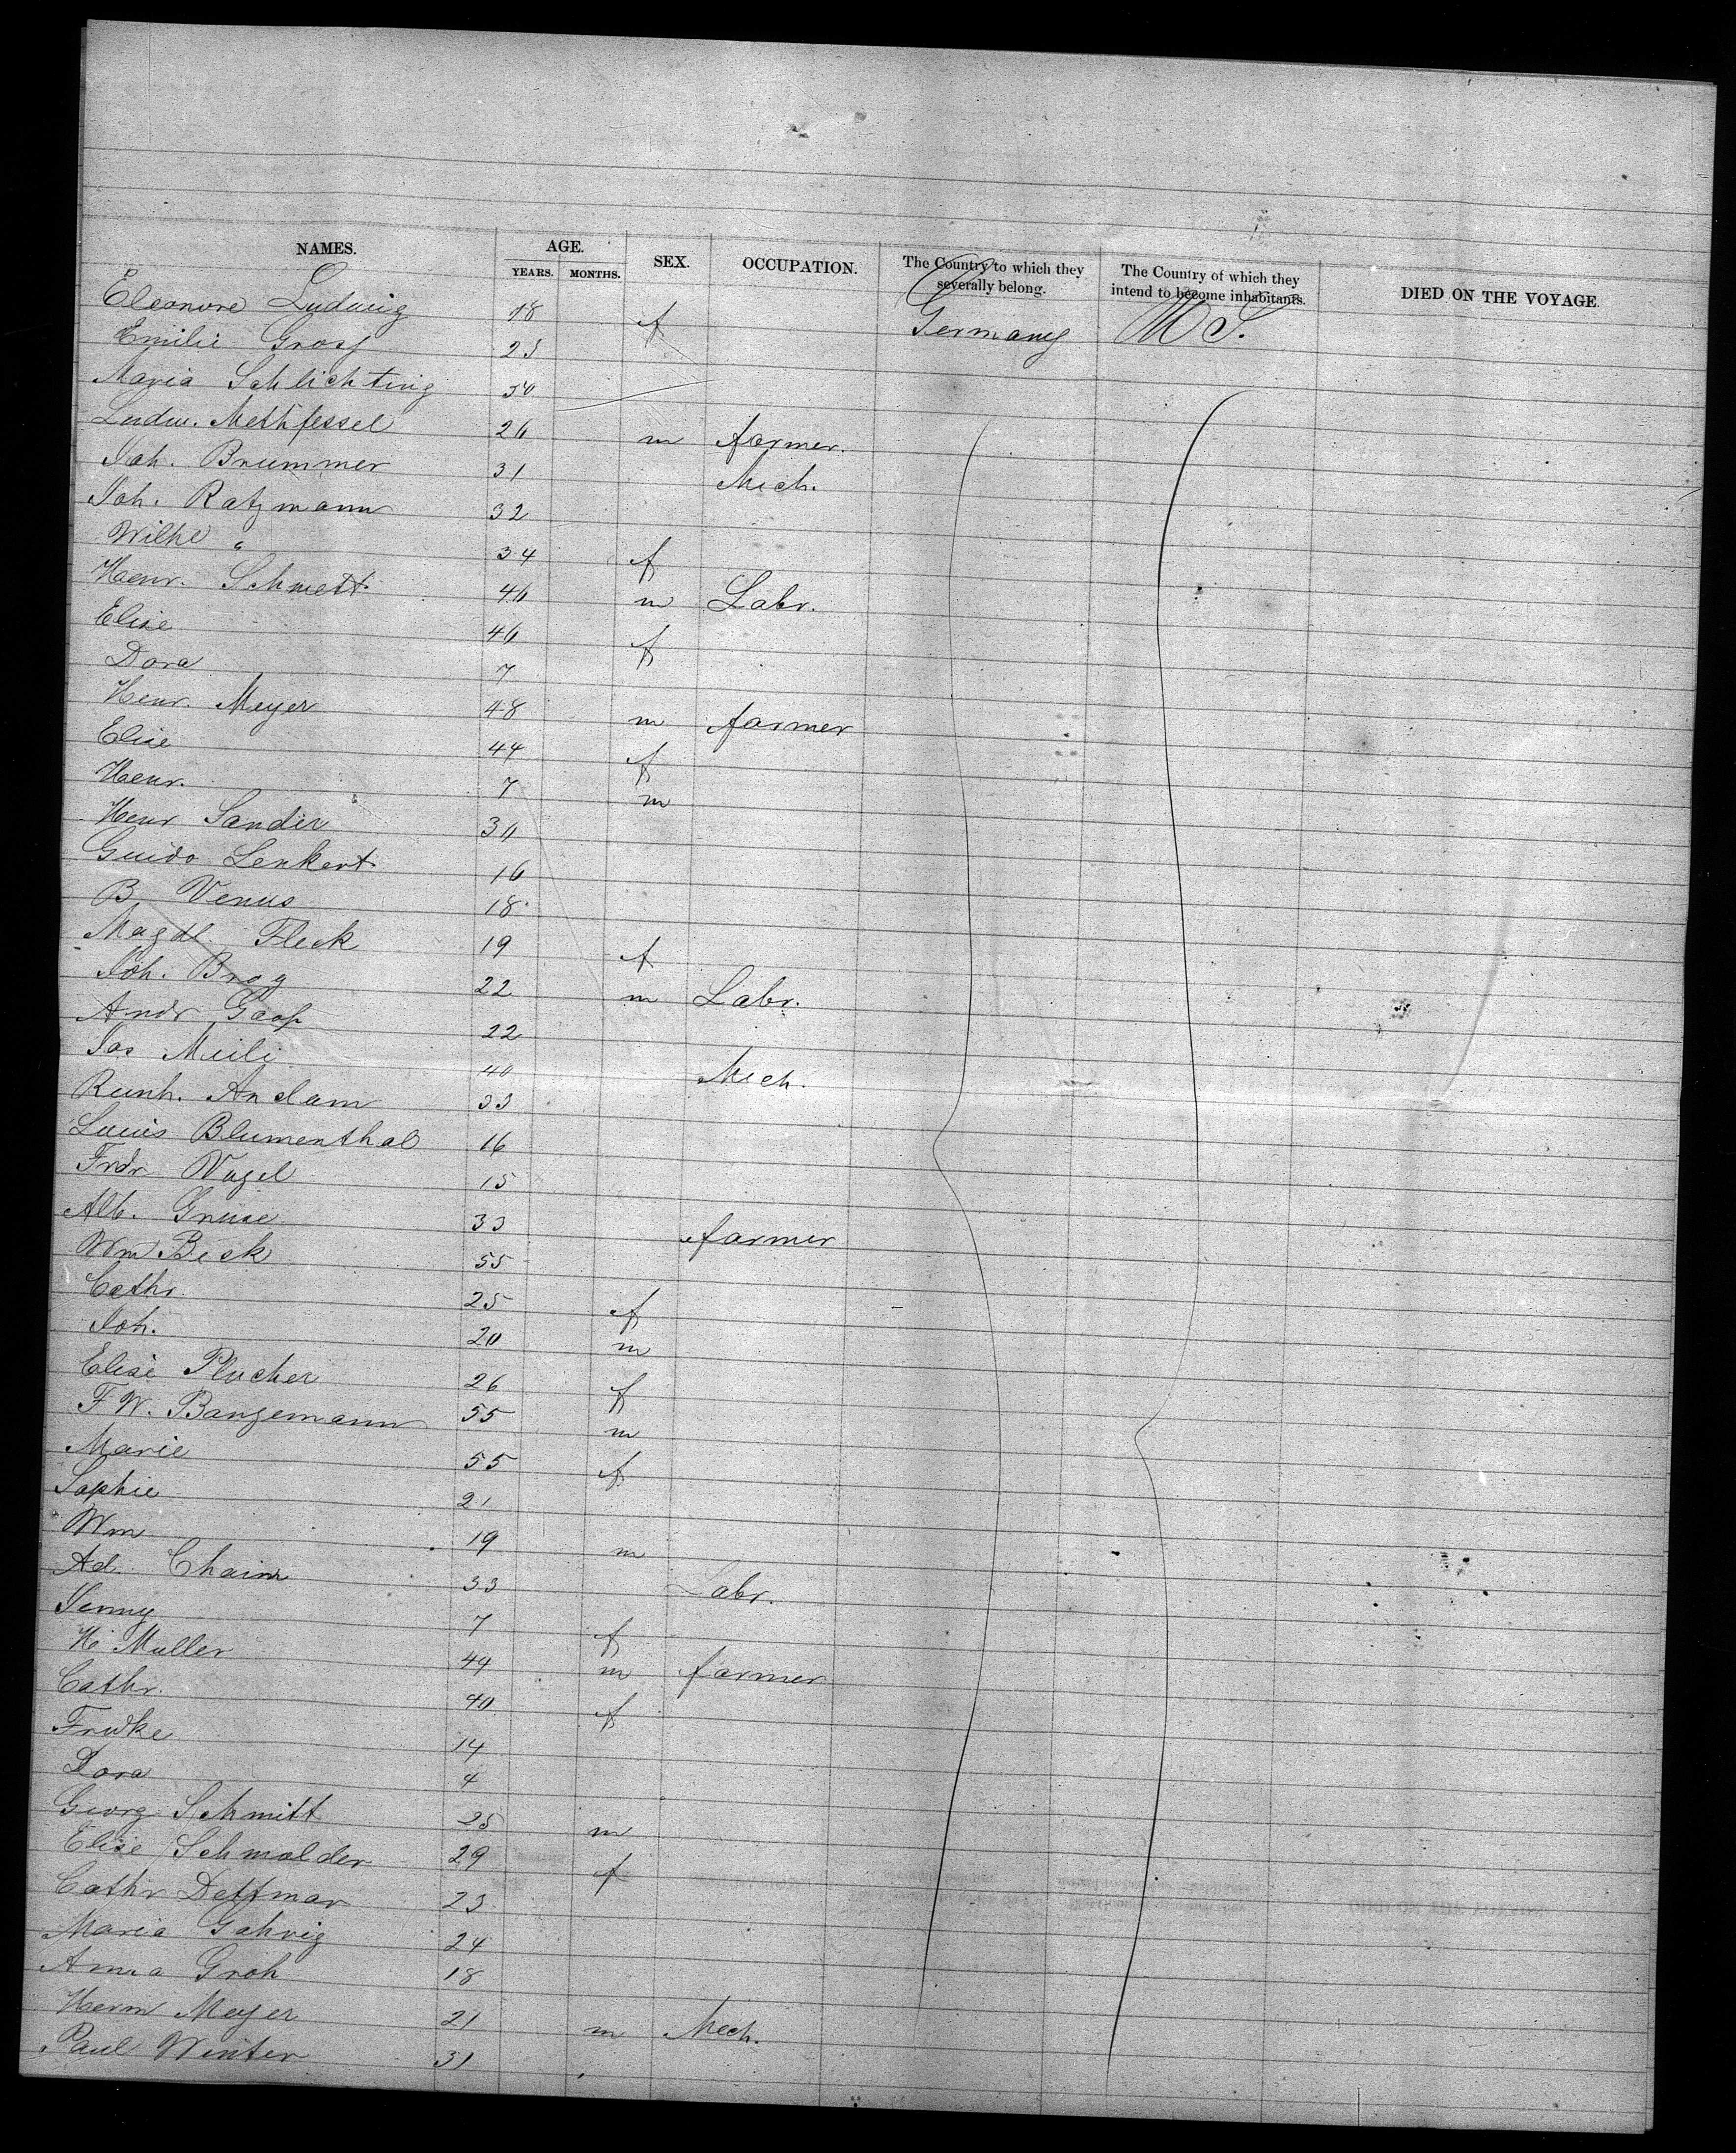 NAMES. AGE. YEARS. MONTHS. SEX. OCCUPATION. The Country to which they severally belong. The Country of which they intend to become inhabitants. DIED ON THE VOYAGE.
Eleonore Ludwig 18 f Germany U S.
Emilie Gross 23
Maria Schlichting 30
Ludw. Methfessel 26 m farmer.
Joh. Brummer 31 Mech.
Joh. Ratzmann 32
Wilhe " 34 f
Henr. Schmett 40 m Labr.
Elise 46 f
Dora 7
Henr. Meyer 48 m farmer
Elise 44 f
Henr. 7 m
Henr Sander 30
Guido Lenkert 16
B. Venus 18
Magdl. Fleck 19 f
Joh. Brog 22 m Labr.
Andr 22
Jos Meili 40 Mech.
Reinh. Andam 33
Louis Blumenthal 16
Frdr Vogel 15
Alb. Gruse 33 farmer
Wm Beck 55
Cathr. 25 f
Joh. 20 m
Elise Plucher 26 f
F W. Bangemann 55 m
Marie 55 f
Sophie 21
Wm 19 m
Ad. Chaim 33 Labr.
Jenny 7 f
H. Muller 44 m farmer
Cathr. 40 f
Fridke 14
Dora 4
Georg Schmitt 25 m
Elise Schmolder 29 f
Cathr Dettmar 23
Maria Gahrig 24
Anna Groh 18
Herm Meyer 21 m Mech.
Paul Winter 31